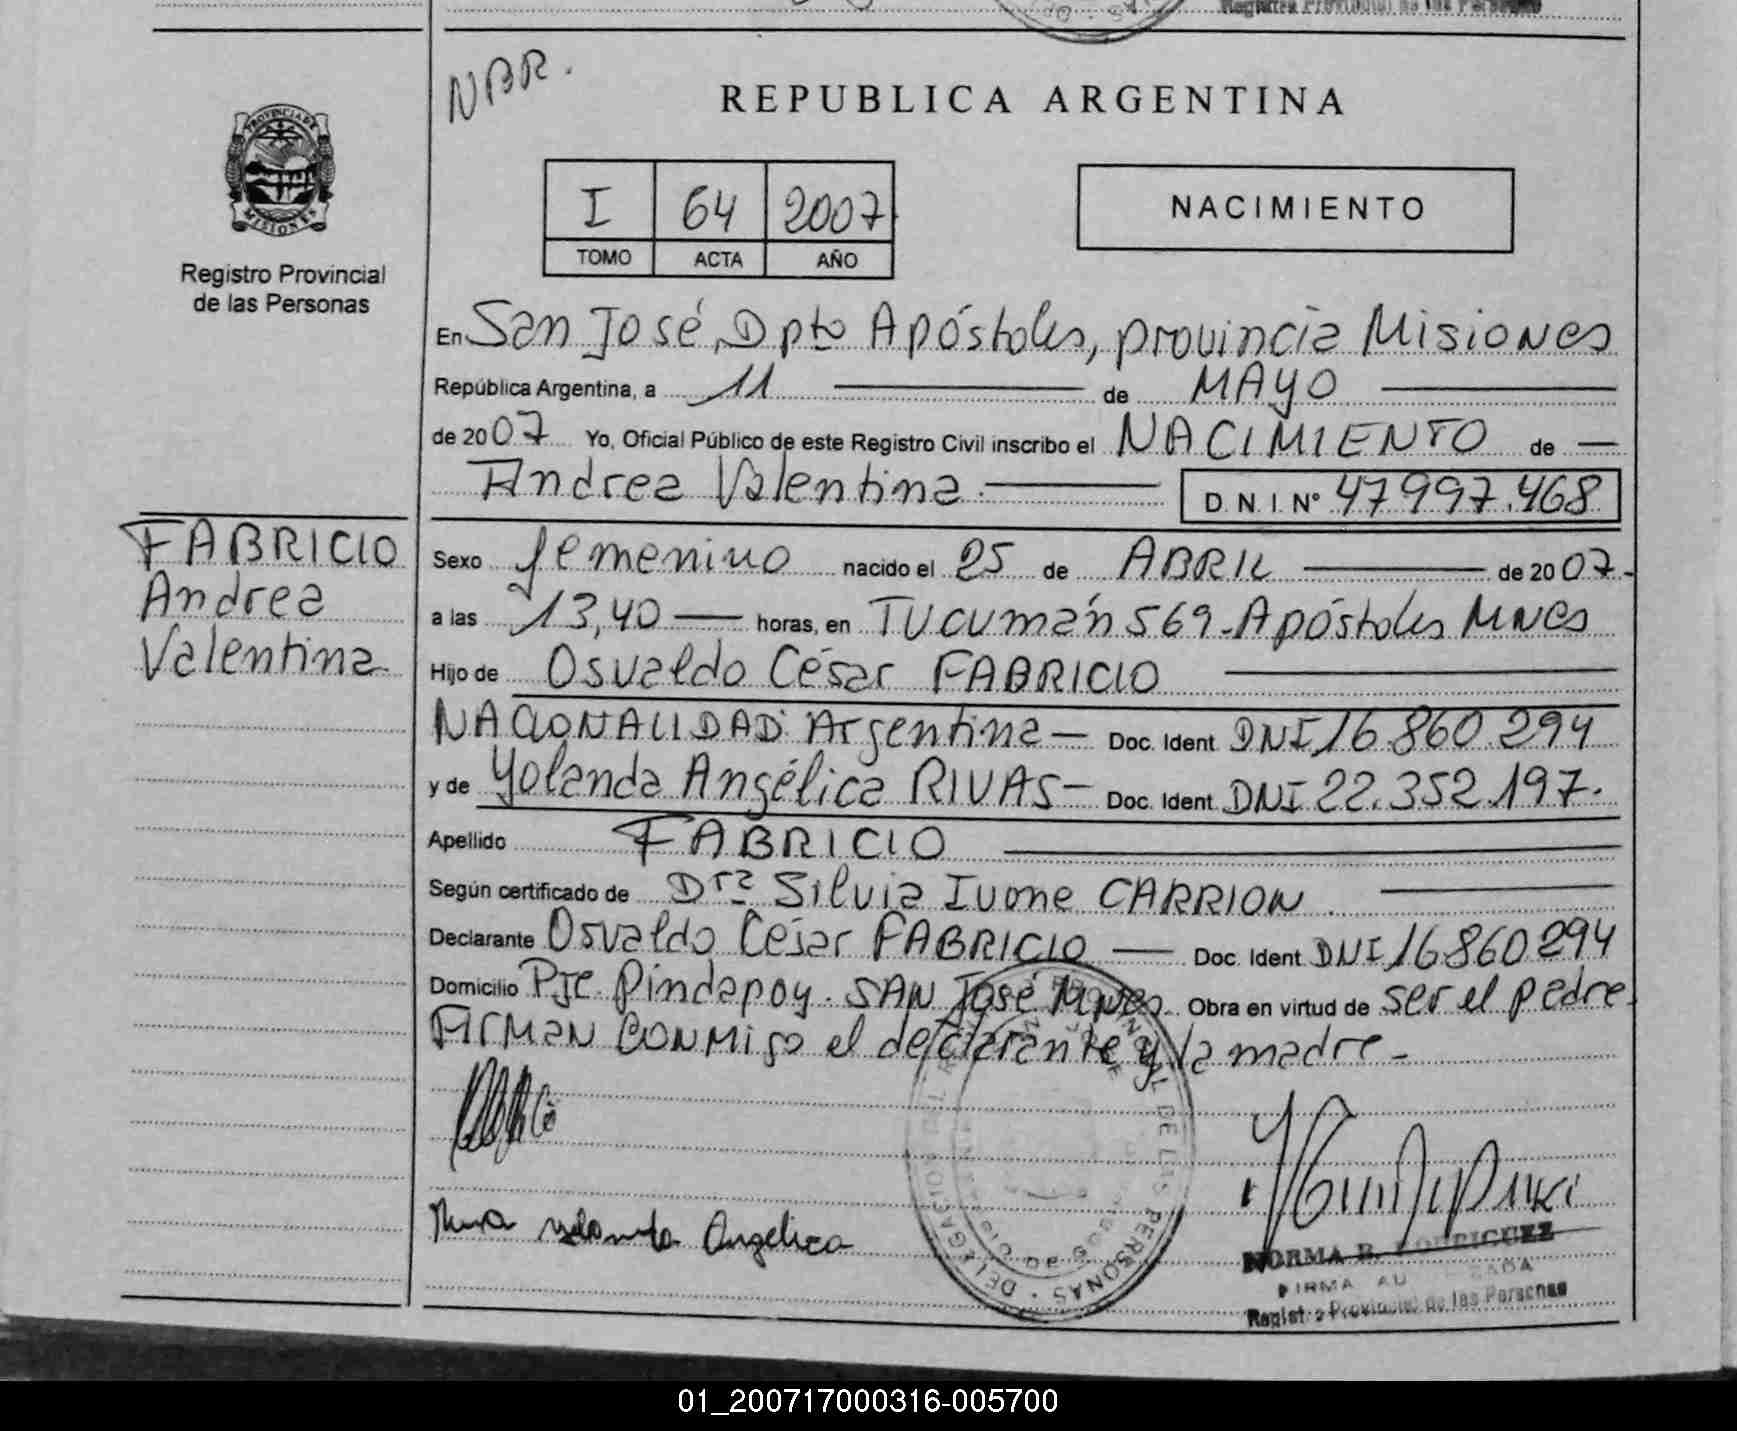 Registro Provincial de las Personas
NBR.
REPUBLICA ARGENTINA
PROVINCIA DE
MISIONES
Registro Provincial
de las Personas
I 64 2007
TOMO ACTA AÑO
NACIMIENTO
En San José, Dpto Apóstoles, provincia Misiones
República Argentina, a 11 de MAYO
de 2007 Yo, Oficial Público de este Registro Civil inscribo el NACIMIENTO de
Andrea Valentina. D.N.I. N° 47997.468
FABRICIO
Andrea
Valentina
Sexo femenino nacido el 25 de ABRIL de 2007.
a las 13,40 horas, en Tucumán 569-Apóstoles Mnes
Hijo de Osvaldo César FABRICIO
NACIONALIDAD Argentina Doc. Ident. DNI 16.860.294
y de Yolanda Angélica RIVAS Doc. Ident. DNI 22.352.197.
Apellido FABRICIO
Según certificado de Drª Silvia Ivone CARRION.
Declarante Osvaldo César FABRICIO Doc. Ident. DNI 16860294
Domicilio Pje. Pindapoy. SAN José Mnes. Obra en virtud de ser el padre.
Firman conmigo el declarante y la madre-
Angelica
DELEGACION
DE LAS PERSONAS
NORMA B. RODRIGUEZ
FIRMA
Registro Provincial de las Personas
01_200717000316-005700